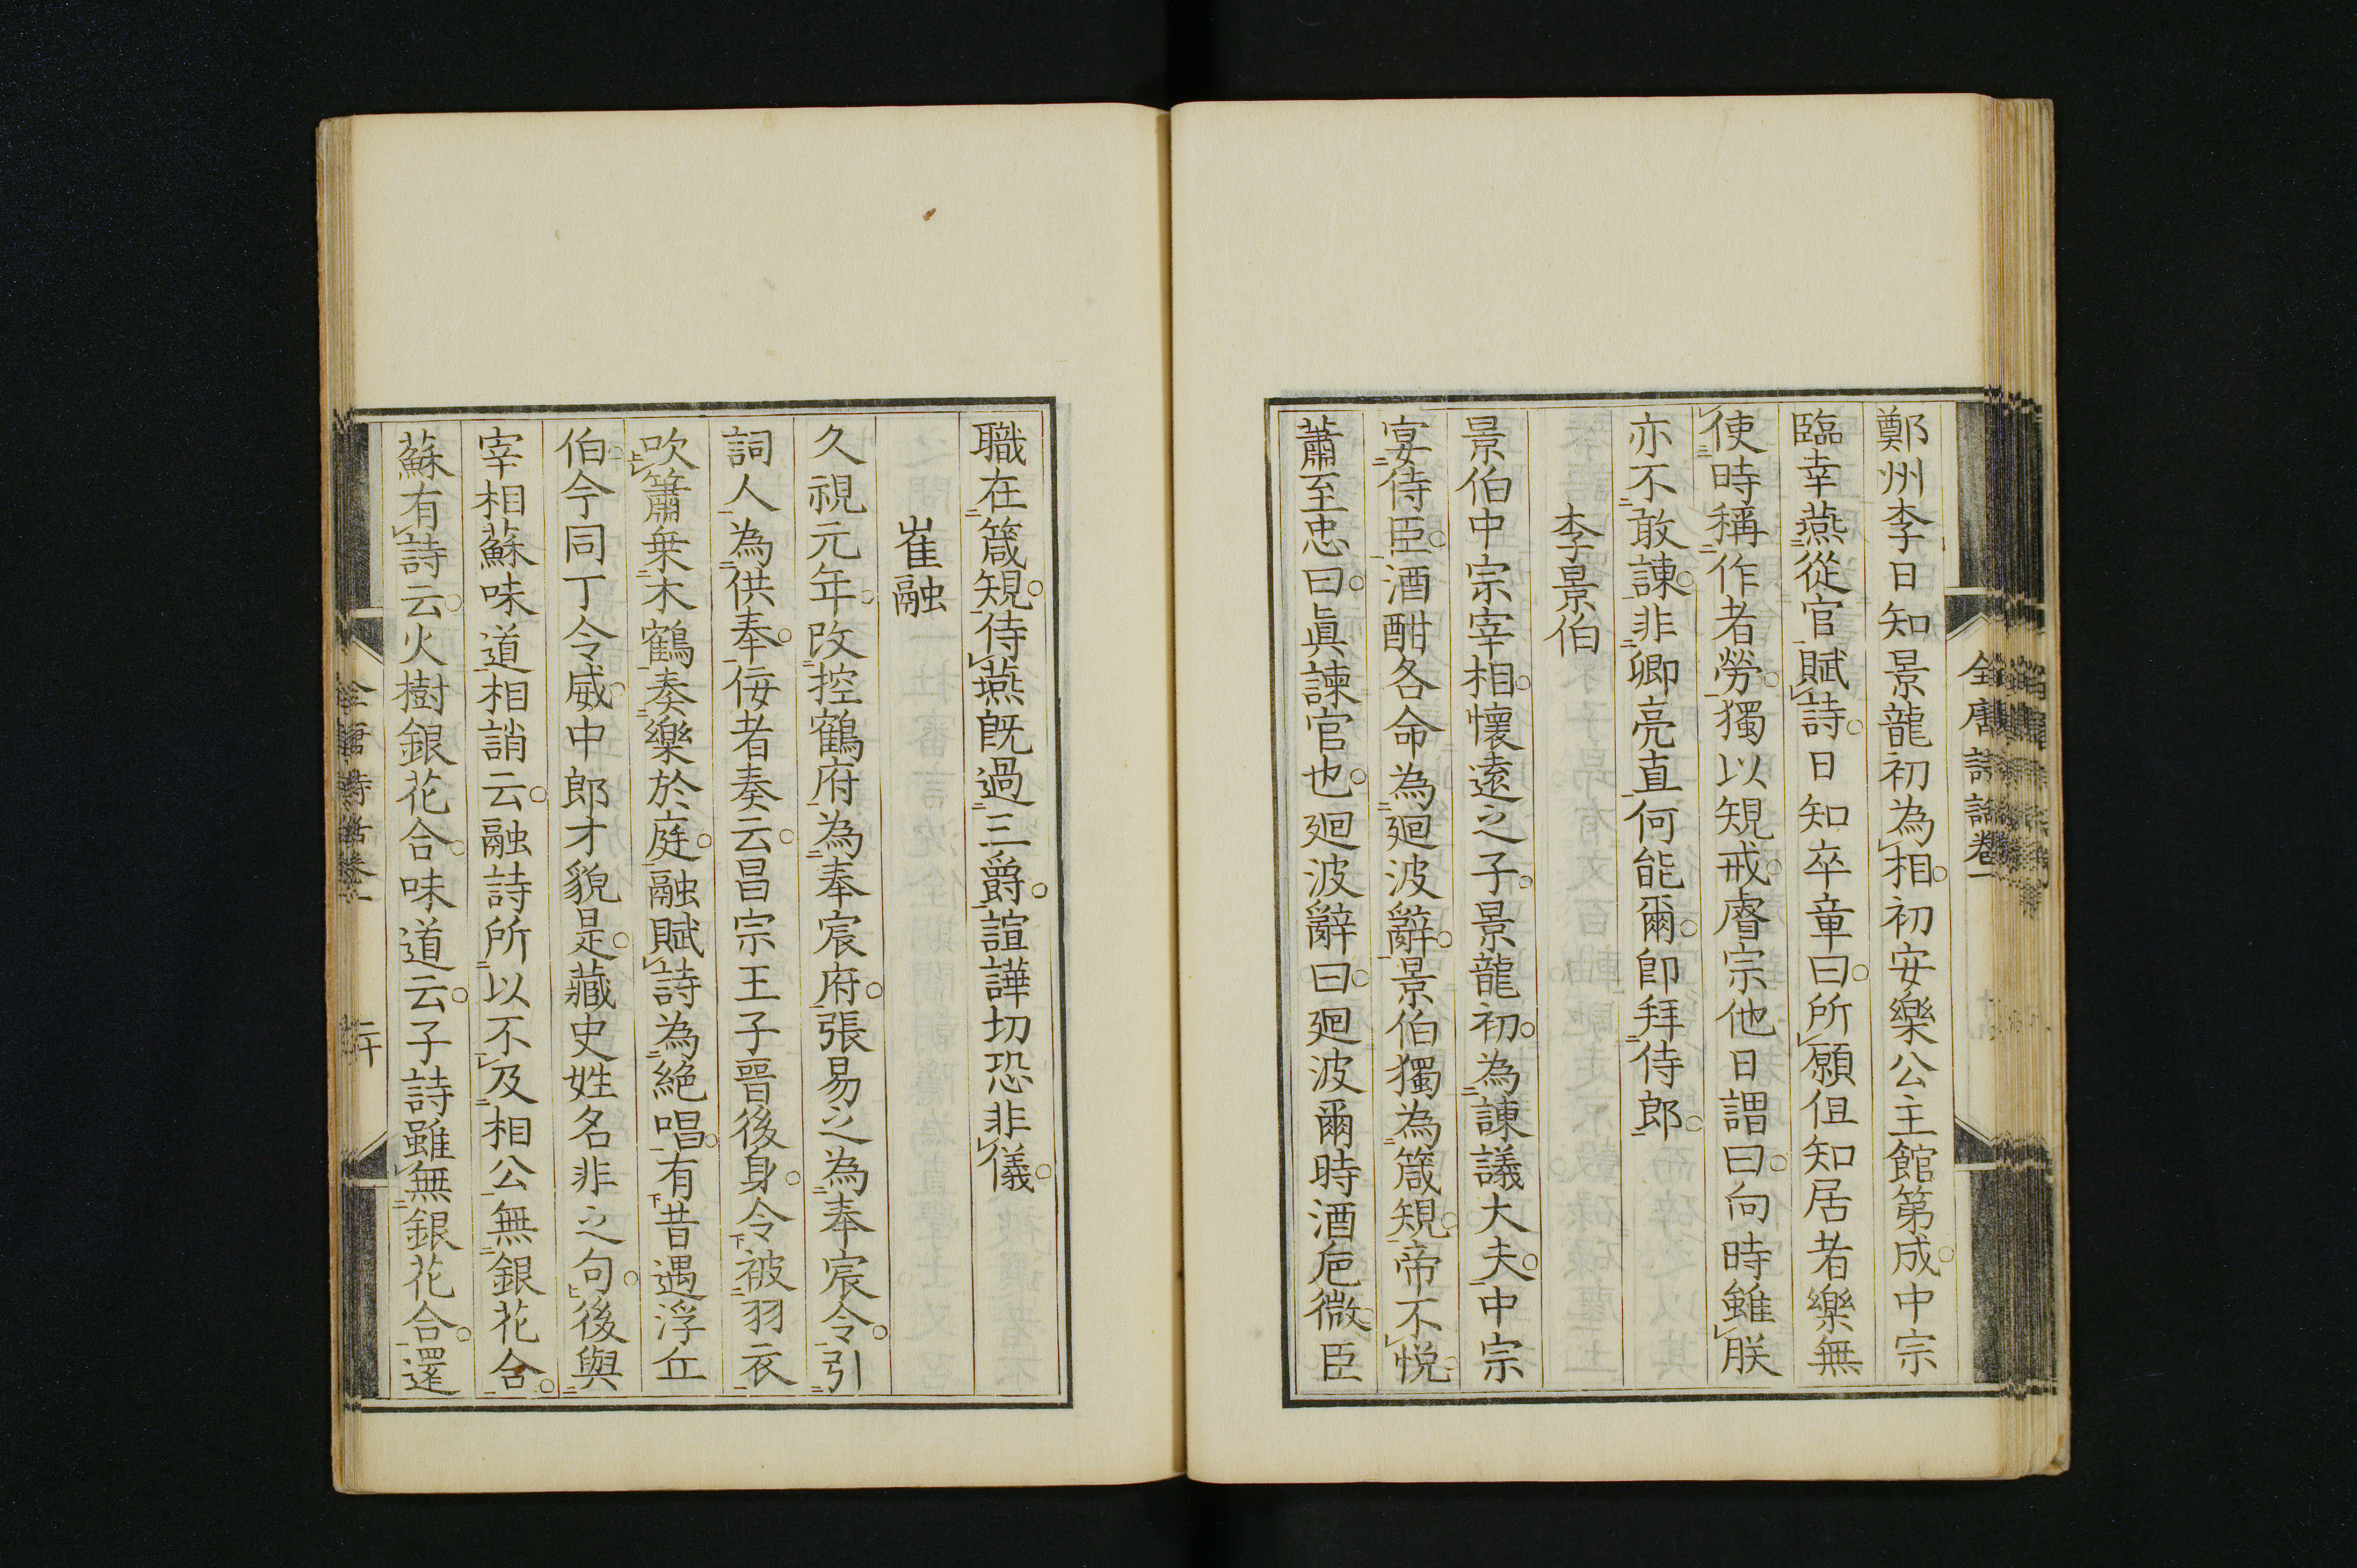 全唐詩話卷一
鄭州李日知景龍初為相初安樂公主館第成中宗
臨幸燕從官賦詩日知卒章曰所願但知居者樂無
使時稱作者勞獨以規戒睿宗他日謂曰向時雖朕
亦不敢諫非卿亮直何能爾即拜侍郎
李景伯
景伯中宗宰相懷遠之子景龍初為諫議大夫中宗
宴侍臣酒酣各命為廻波辭景伯獨為箴規帝不悦
蕭至忠曰眞諫官也廻波辭曰廻波爾時酒巵微臣
職在箴規侍燕既過三爵諠譁切恐非儀
崔融
久視元年改控鶴府為奉宸府張易之為奉宸令引
詞人為供奉佞者奏云昌宗王子晉後身令被羽衣
吹簫乗木鶴奏樂於庭融賦詩為絶唱有昔遇浮丘
伯今同丁令威中郎才貌是藏史姓名非之句後與
宰相蘇味道相誚云融詩所以不及相公無銀花合
蘇有詩云火樹銀花合味道云子詩雖無銀花合還
全唐詩話卷一
二十